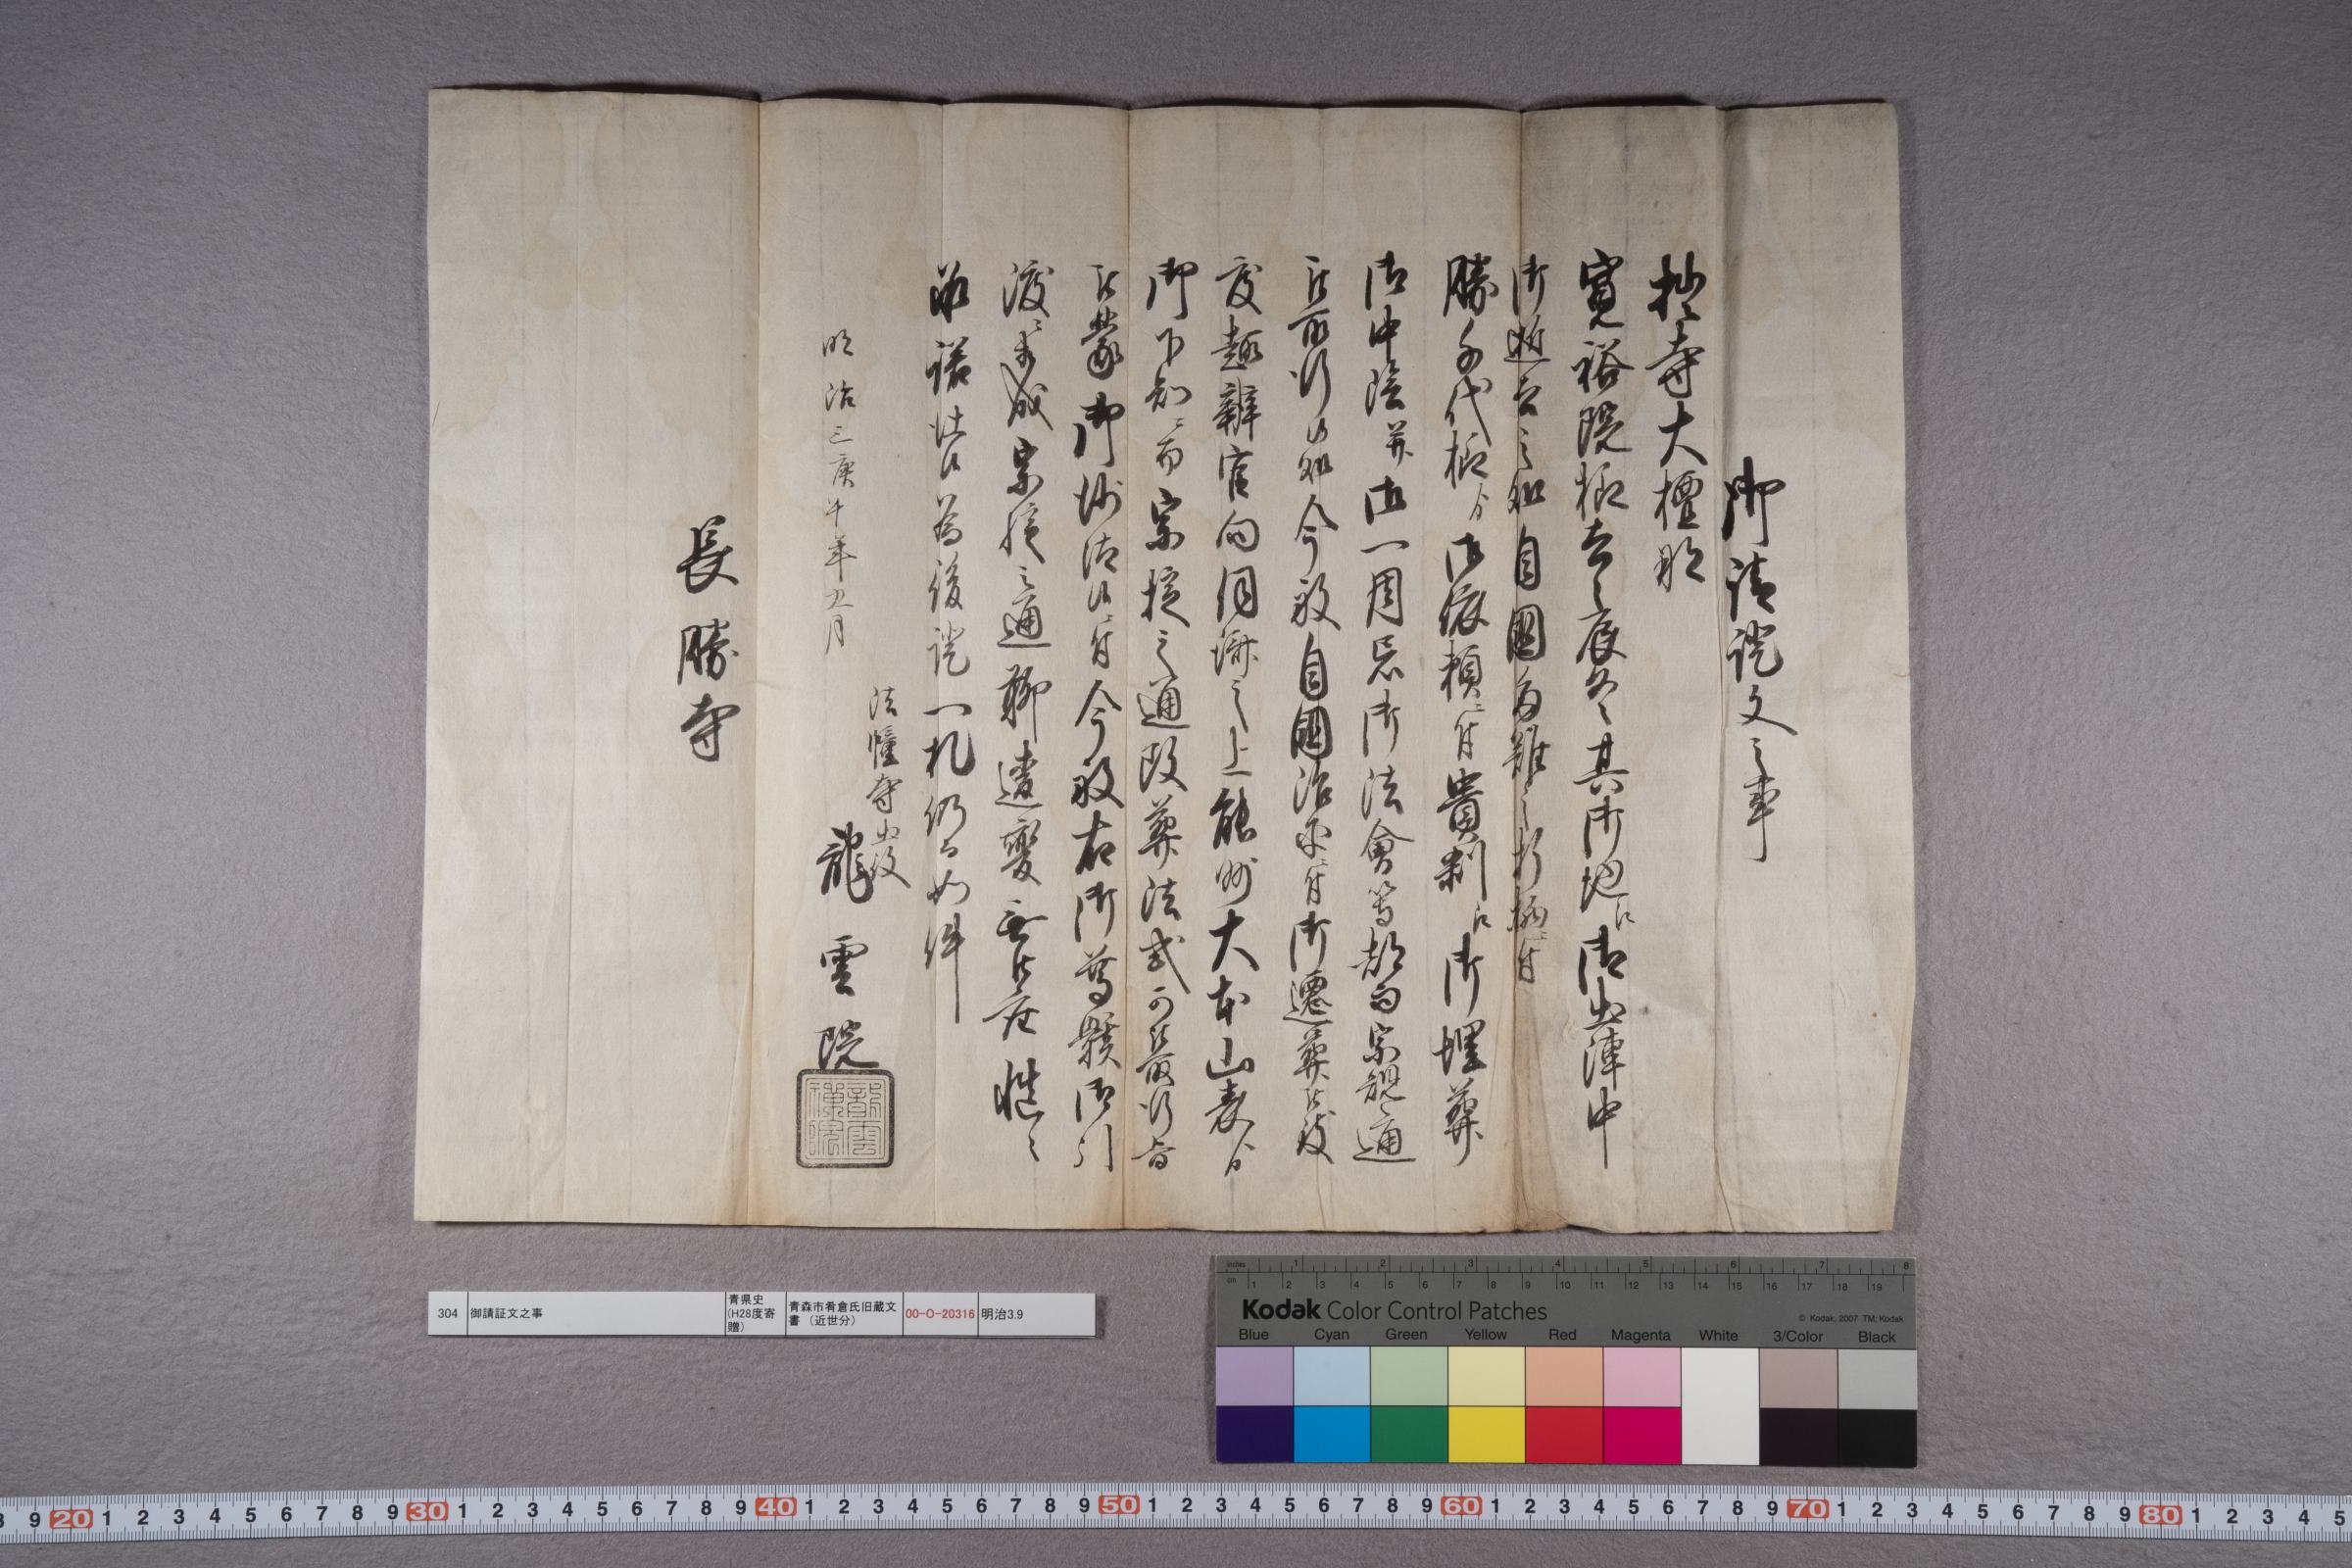 御請證文之事
拙寺大檀那
寛裕院様去ル辰冬其御地江御出陣中
御逝去之処自國為難之折柄ニ付
勝千代様ゟ御依頼ニ付貴刹江御埋葬
御中陰并御一周忌御法會等都而宗規之通
被取行候処今般自國治平ニ付御遷葬被致
度趣辨官向伺済之上能州大本山表ゟ
御下知ニ而宗掟之通改葬法式可被取行旨
被蒙御沙汰候ニ付今般右御尊骸御引
渡ニ相成宗掟之通聊遺變無御座慥ニ
承諾仕候為後證一札仍而如件
明治三庚午年九月
法幢寺出役
龍雲院
龍雲院
長勝寺
304 御請証文之事 青県史(H28度寄贈) 青森市肴倉氏旧蔵文書（近世分） 00-O-20316 明治3.9
inches 1 2 3 4 5 6 7 8
cm 1 2 3 4 5 6 7 8 9 10 11 12 13 14 15 16 17 18 19
Kodak Color Control Patches © Kodak, 2007 TM: Kodak
Blue Cyan Green Yellow Red Magenta White 3/Color Black
9 20 1 2 3 4 5 6 7 8 9 30 1 2 3 4 5 6 7 8 9 40 1 2 3 4 5 6 7 8 9 50 1 2 3 4 5 6 7 8 9 60 1 2 3 4 5 6 7 8 9 70 1 2 3 4 5 6 7 8 9 80 1 2 3 4 5